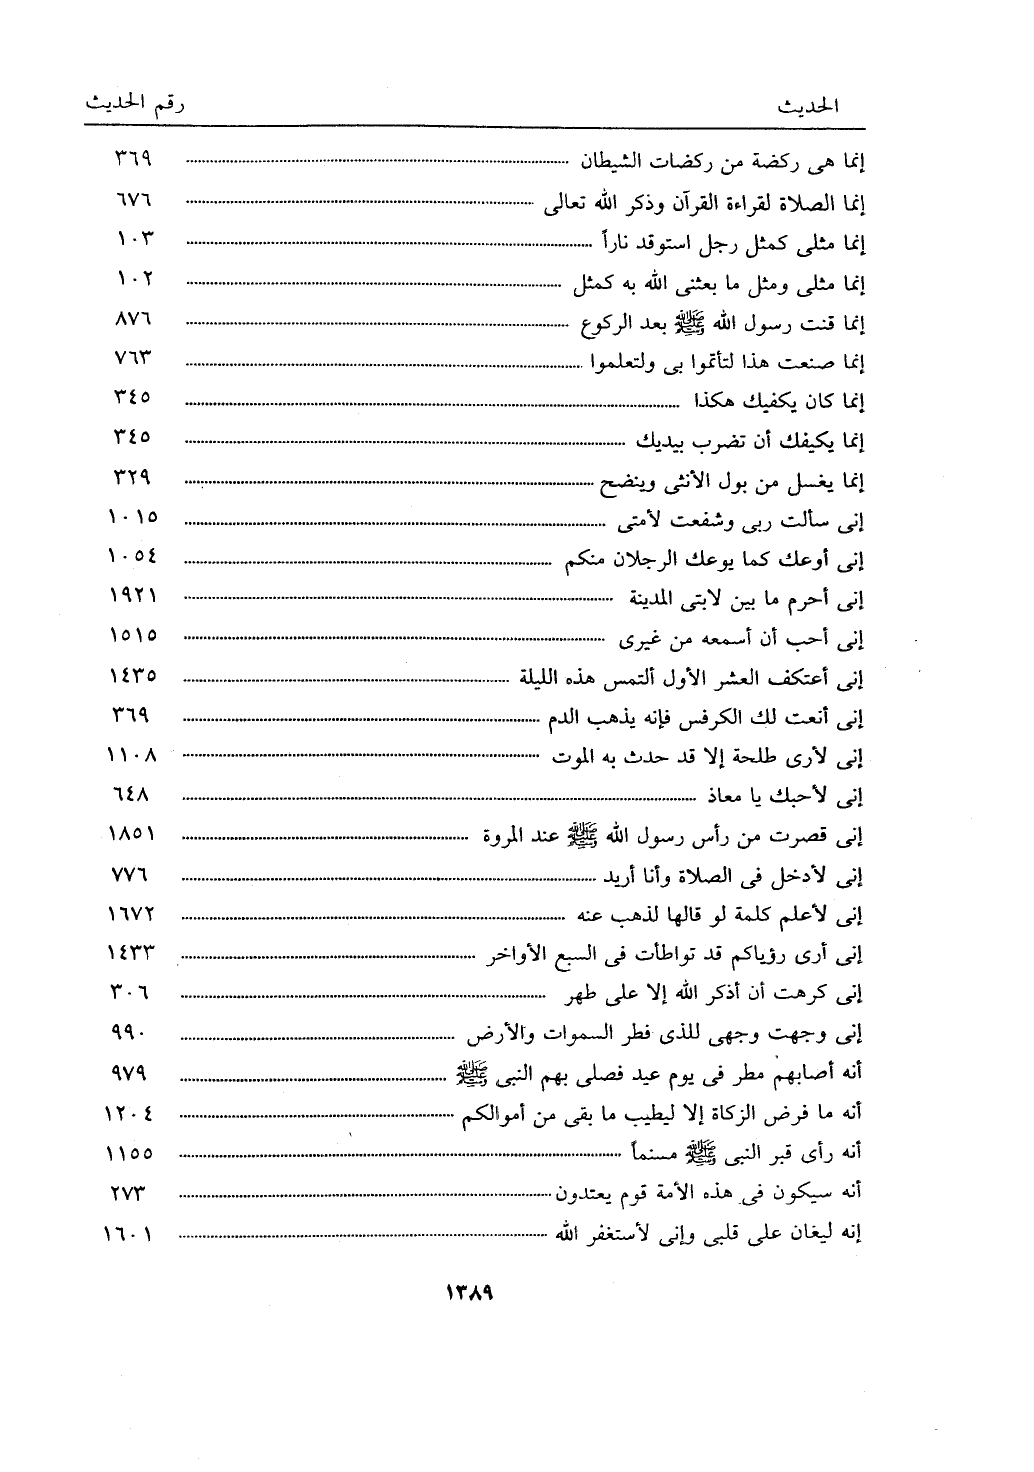 الحديث رقم الحديث
إنما هى ركضة من ركضات الشيطان ٣٦٩
إنما الصلاة لقراءة القرآن وذكر الله تعالى ٦٧٦
إنما مثلى كمثل رجل استوقد ناراً ١٠٣
إنما مثلى ومثل ما بعثنى الله به كمثل ١٠٢
إنما قنت رسول الله ﷺ بعد الركوع ٨٧٦
إنما صنعت هذا لتأتموا بى ولتعلموا ٧٦٣
إنما كان يكفيك هكذا ٣٤٥
إنما يكيفك أن تضرب بيديك ٣٤٥
إنما يغسل من بول الأنثى وينضح ٣٢٩
إنى سألت ربى وشفعت لأمتى ١٠١٥
إنى أوعك كما يوعك الرجلان منكم ١٠٥٤
إنى أحرم ما بين لابتى المدينة ١٩٢١
إنى أحب أن أسمعه من غيرى ١٥١٥
إنى أعتكف العشر الأول ألتمس هذه الليلة ١٤٣٥
إنى أنعت لك الكرفس فإنه يذهب الدم ٣٦٩
إنى لأرى طلحة إلا قد حدث به الموت ١١٠٨
إنى لأحبك يا معاذ ٦٤٨
إنى قصرت من رأس رسول الله ﷺ عند المروة ١٨٥١
إنى لأدخل فى الصلاة وأنا أريد ٧٧٦
إنى لأعلم كلمة لو قالها لذهب عنه ١٦٧٢
إنى أرى رؤياكم قد تواطأت فى السبع الأواخر ١٤٣٣
إنى كرهت أن أذكر الله إلا على طهر ٣٠٦
إنى وجهت وجهى للذى فطر السموات والأرض ٩٩٠
أنه أصابهم مطر فى يوم عيد فصلى بهم النبى ﷺ ٩٧٩
أنه ما فرض الزكاة إلا ليطيب ما بقى من أموالكم ١٢٠٤
أنه رأى قبر النبى ﷺ مسنماً ١١٥٥
أنه سيكون فى هذه الأمة قوم يعتدون ٢٧٣
إنه ليغان على قلبى وإنى لأستغفر الله ١٦٠١
١٣٨٩